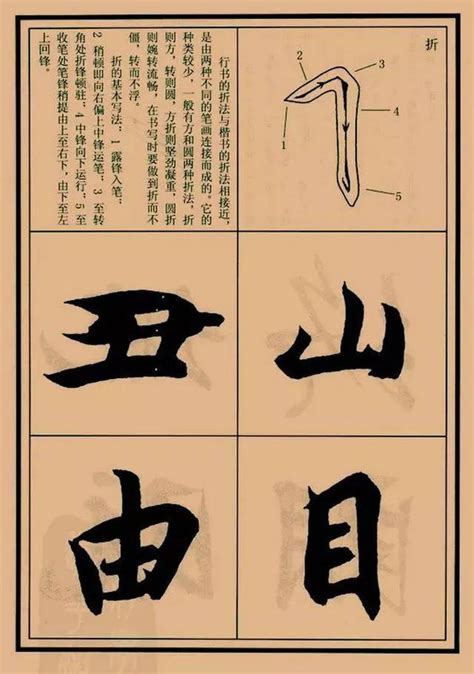 折
2
3
4
1
5
行书的折法与楷书的折法相接近，
是由两种不同的笔画连接而成的。它的
种类较少，一般有方和圆两种折法，折
则方，转则圆，方折则坚劲凝重，圆折
则婉转流畅，在书写时要做到折而不
僵，转而不浮。
折的基本写法：1 露锋入笔；
2 稍顿即向右偏上中锋运笔；3 至转
角处折锋顿驻；4 中锋向下运行，5 至
收笔处笔锋稍提由上至右下，由下至左
上回锋。
山
目
丑
由